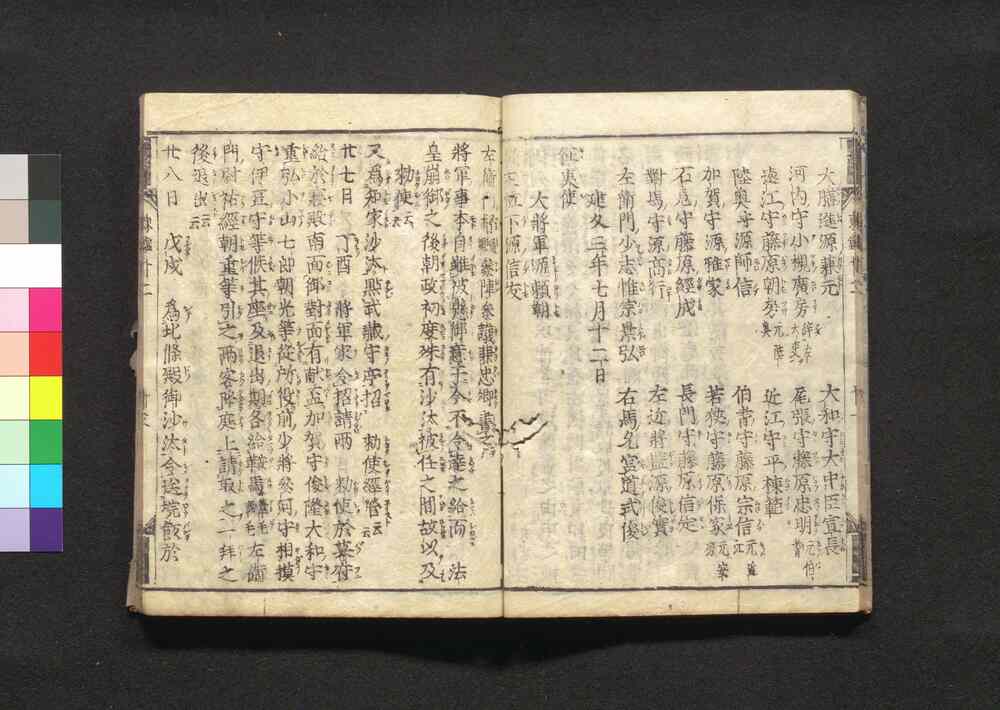 大膳進源兼元　大和守大中臣宣長
河内守小槻廣房　尾張守藤原忠明元伯耆
遠江守藤原朝房元陸奥　近江守平棟範
陸奥守源師信　伯耆守藤原宗信元遠江
加賀守源雅家　若狭守藤原保家元安房
石見守藤原經成　長門守藤原信定
對馬守源高行　左近將監源俊實
左衛門少志惟宗景弘　右馬允宮道式俊
建久三年七月十二日
征夷使
大將軍源頼朝
從五位下源信友
左衛門督
參陣參議兼忠卿書之
將軍事本自雖被懸御意于今不令達之給而　法
皇崩御之後朝政初度殊有沙汰被任之間故以及
勅使云云
又為知家沙汰點武藏守亭招　勅使經營云云
廿七日　丁酉　將軍家令招請兩　勅使於幕府
給於寢殿南面御對面有献盃加賀守俊隆大和守
重弘小山七郎朝光等從所役前少將參河守相摸
守伊豆守等候其座及退出期各給鞍馬左衛
門尉祐經朝重等引之両客降庭上請取之一拜之
後退出云云
廿八日　戊戌　為北條殿御沙汰令送垸飯於